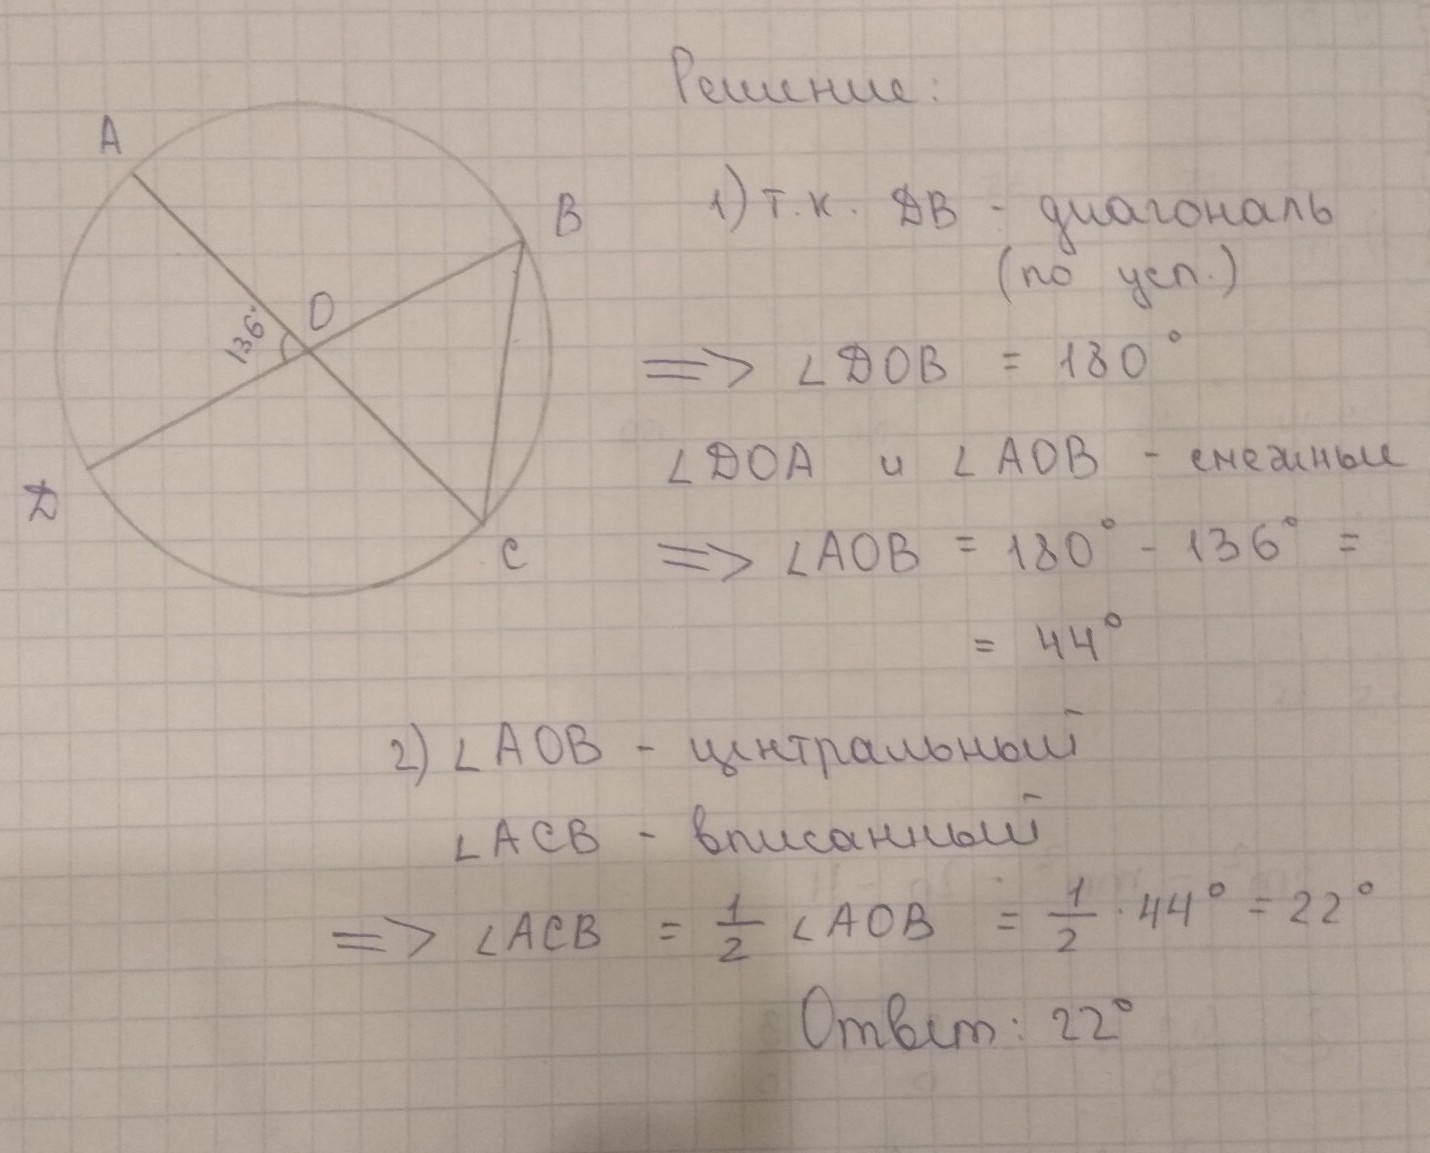 Решение:
A
B
1) т.к. DB - диагональ
(по усл.)
O
136°
=> ∠DOB = 180°
∠DOA и ∠AOB - смежные
D
C
=> ∠AOB = 180° - 136° =
= 44°
2) ∠AOB - центральный
∠ACB - вписанный
=> ∠ACB = 1/2 ∠AOB = 1/2 · 44° = 22°
Ответ: 22°